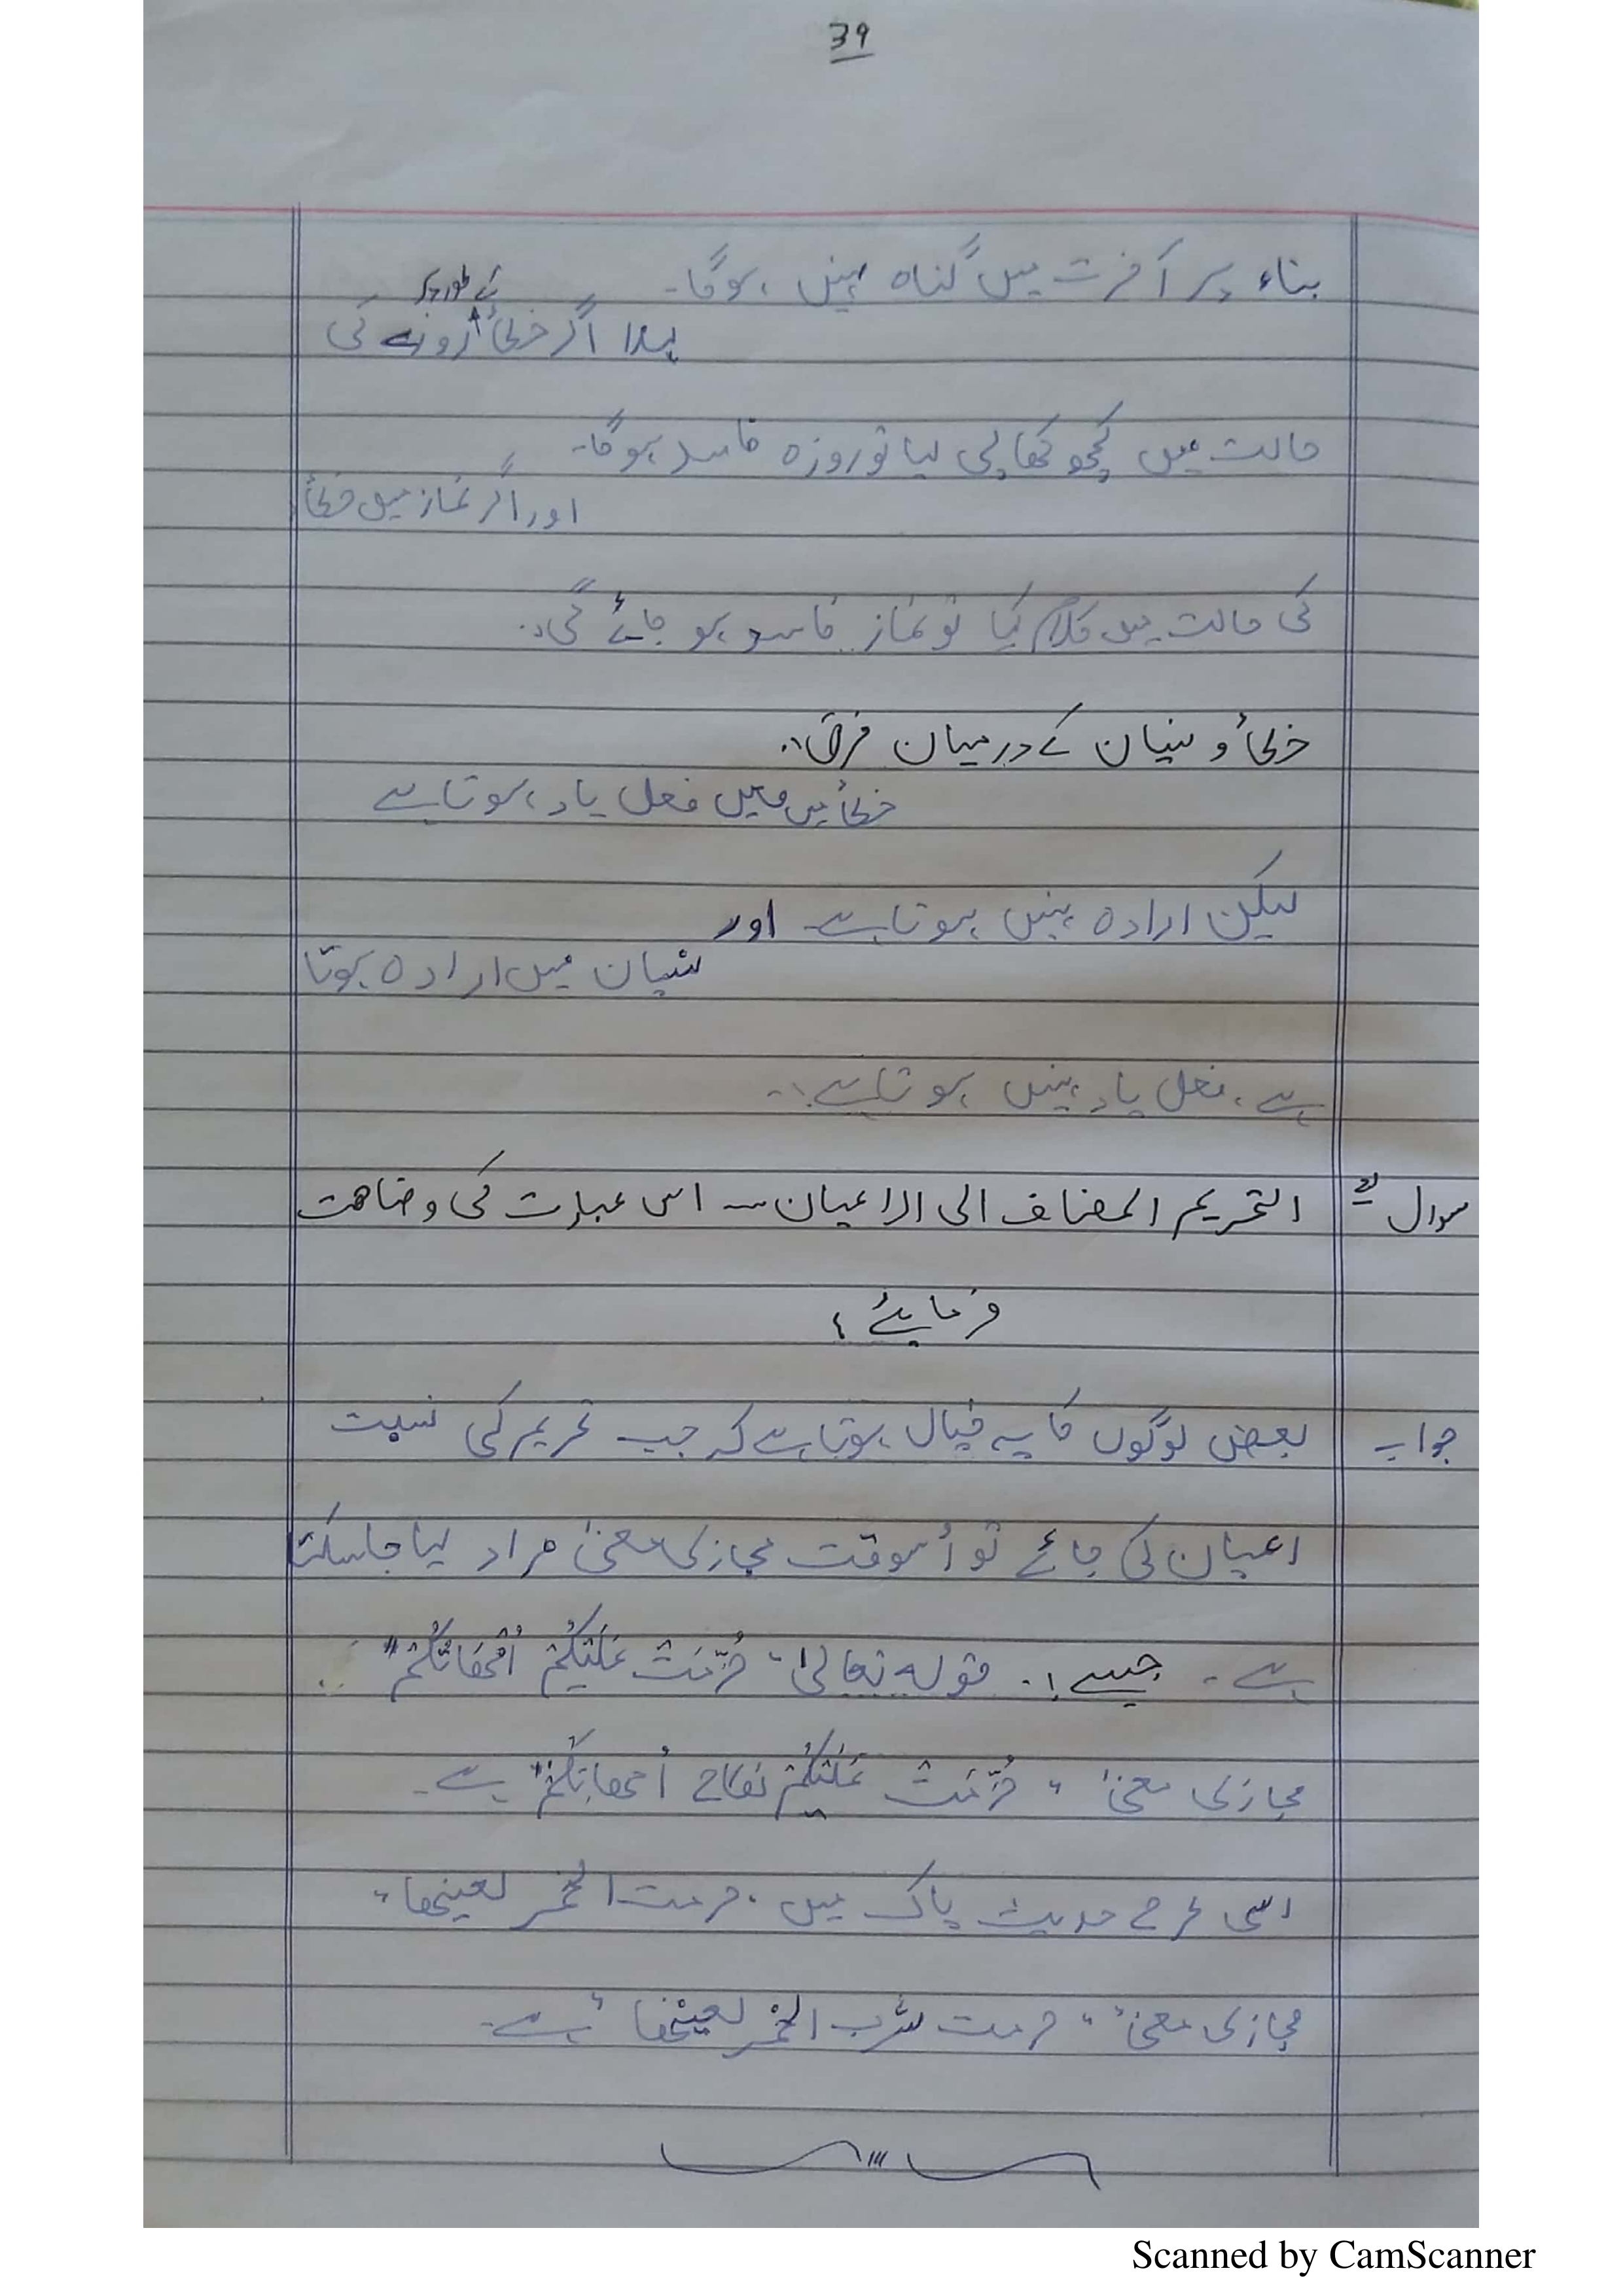 39
بناء پر آخرت میں گناہ نہیں ہوگا۔
کے طور پر
لہذا اگر خطأ روزے کی
حالت میں کچھ کھا پی لیا تو روزہ فاسد ہوگا۔
اور اگر نماز میں خطأ
کی حالت میں کلام کیا تو نماز فاسد ہو جائے گی۔
خطأ و نسیان کے درمیان فرق:
خطأ میں فعل یاد ہوتا ہے
لیکن ارادہ نہیں ہوتا ہے۔ اور
نسیان میں ارادہ ہوتا
ہے، فعل یاد نہیں ہوتا ہے۔
سوال التحریم المضاف الی الاعیان۔ اس عبارت کی وضاحت
فرمایئے؟
جواب بعض لوگوں کا یہ خیال ہوتا ہے کہ جب تحریم کی نسبت
اعیان کی جائے تو اُسوقت مجازی معنیٰ مراد لیا جا سکتا
ہے۔ جیسے:۔ قولہ تعالیٰ "حُرِّمَتْ عَلَیْکُمْ اُمَّھَاتُکُمْ"
مجازی معنیٰ "حُرِّمَتْ عَلَیْکُمْ نکاح اُمھاتِکُمْ" ہے۔
اسی طرح حدیث پاک میں "حرمت الخمر لعینھا"
مجازی معنیٰ "حرمت شرب الخمر لعینھا" ہے۔
Scanned by CamScanner